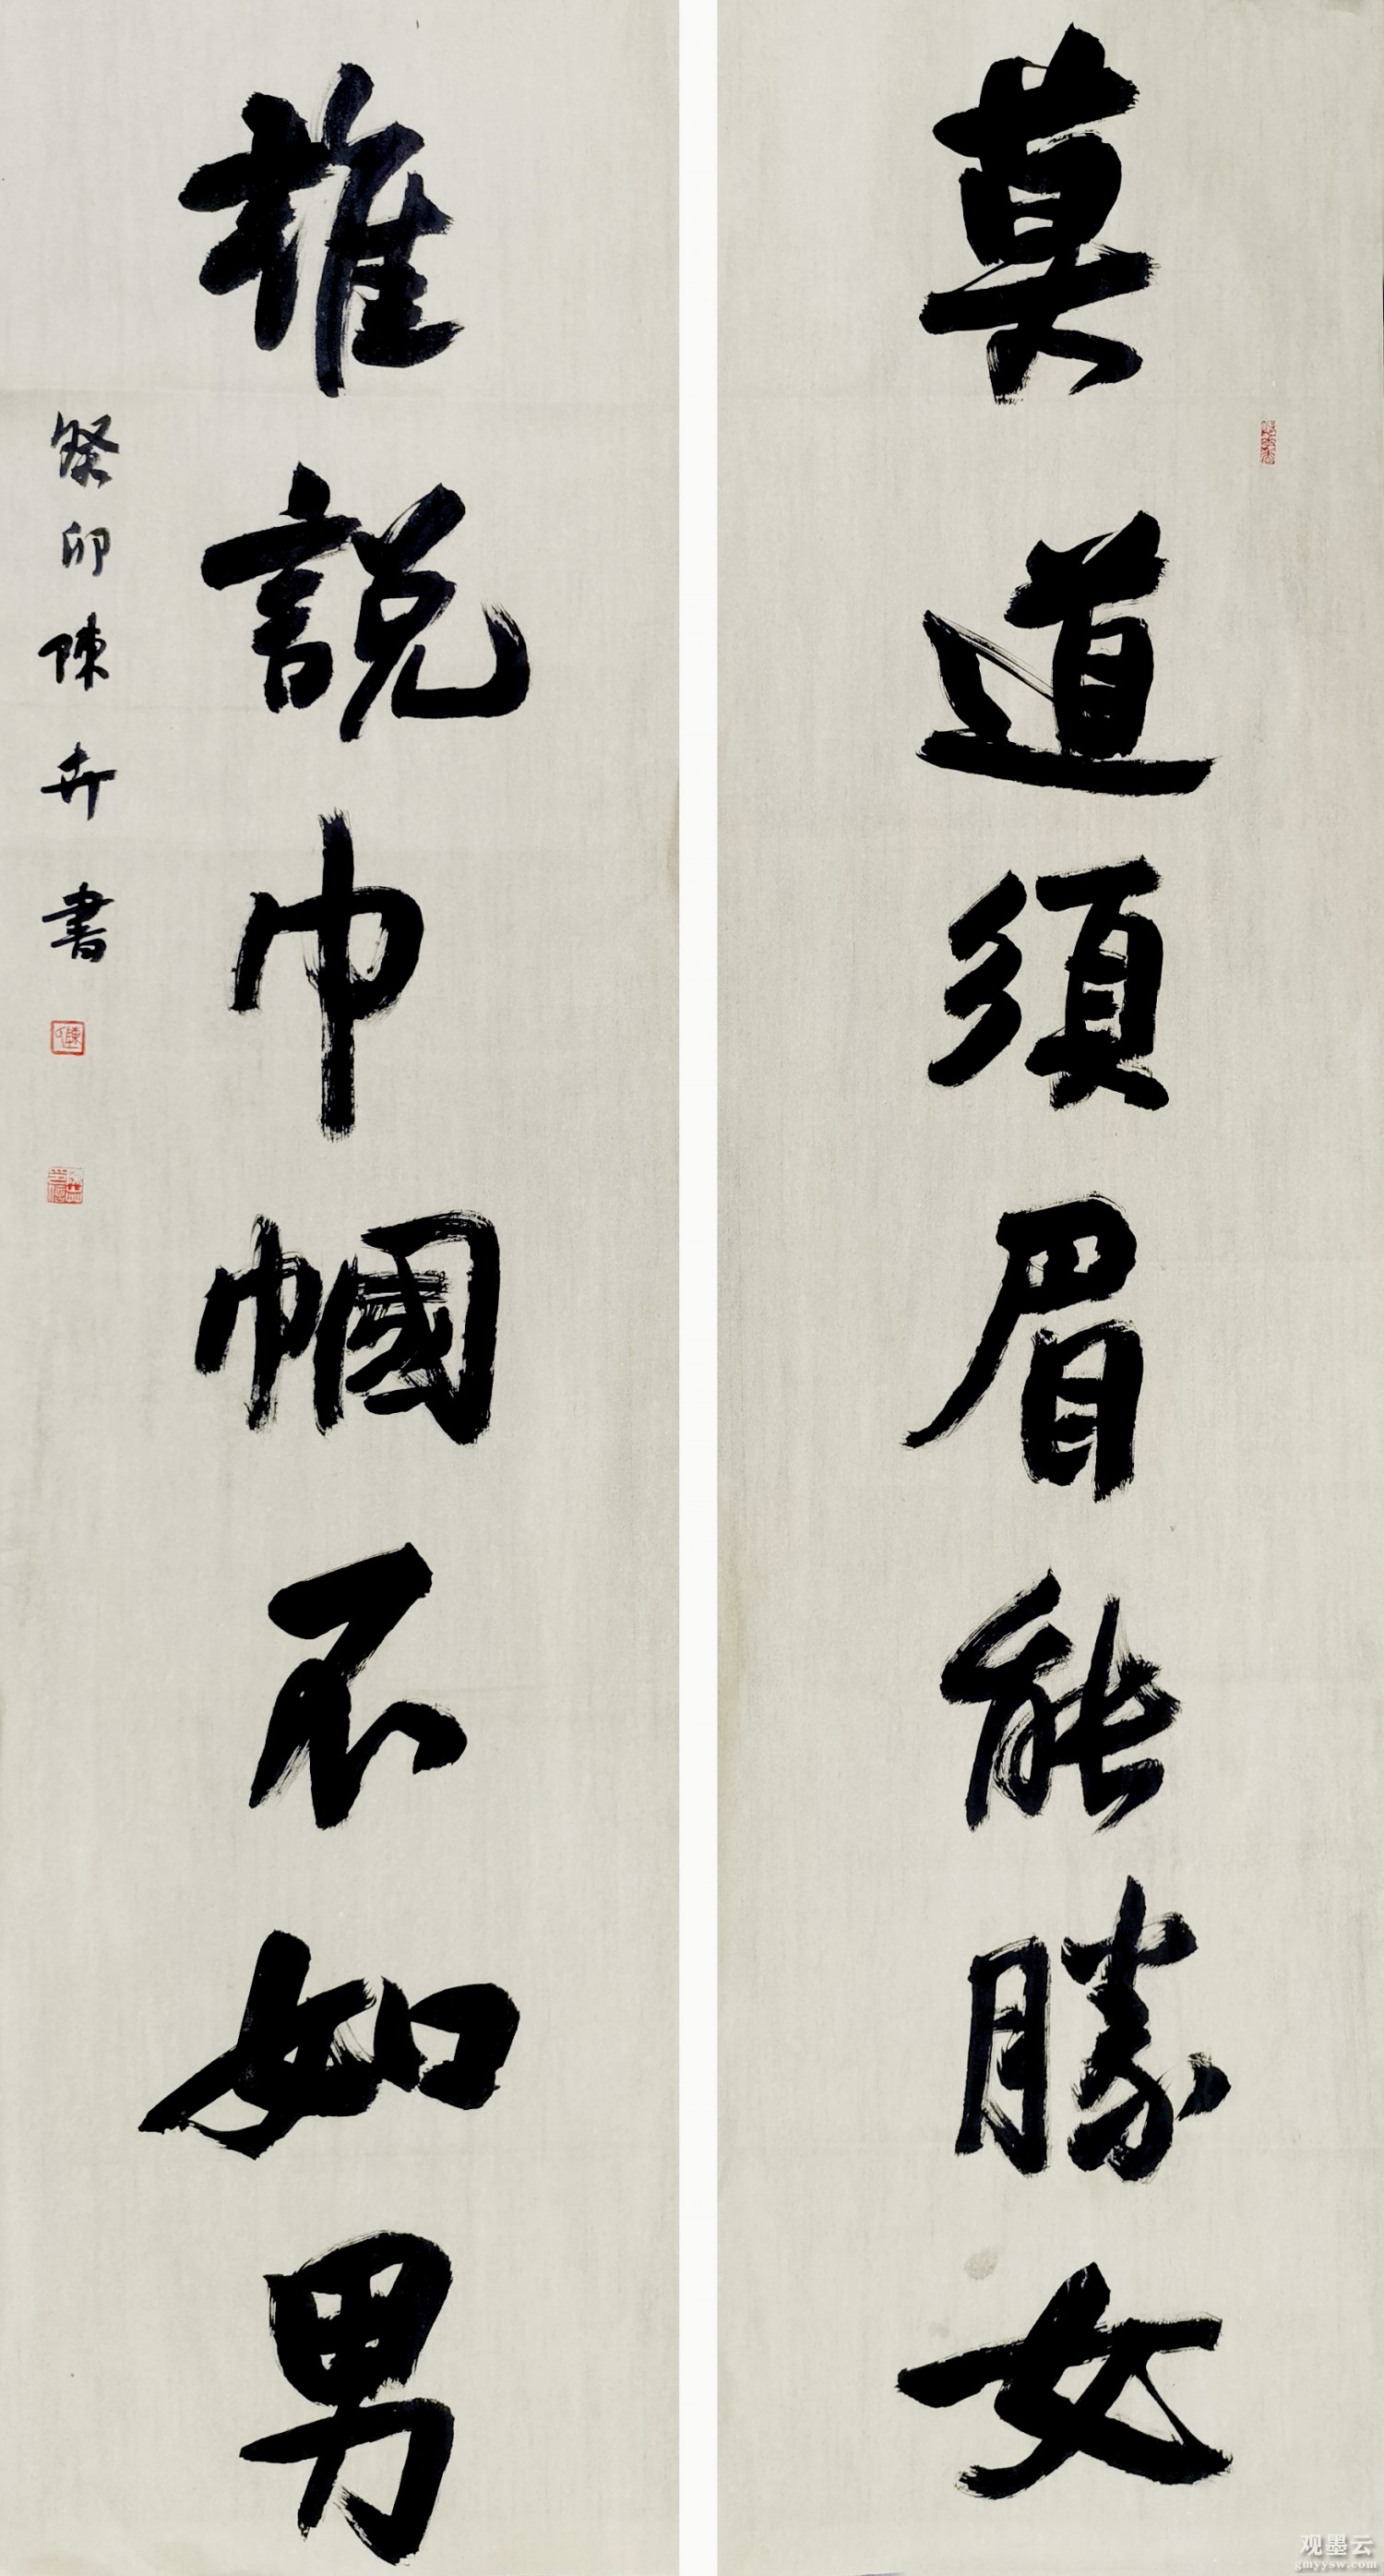 莫道須眉能勝女
誰說巾幗不如男
癸卯陳卉書
观墨云
gmyysw.com